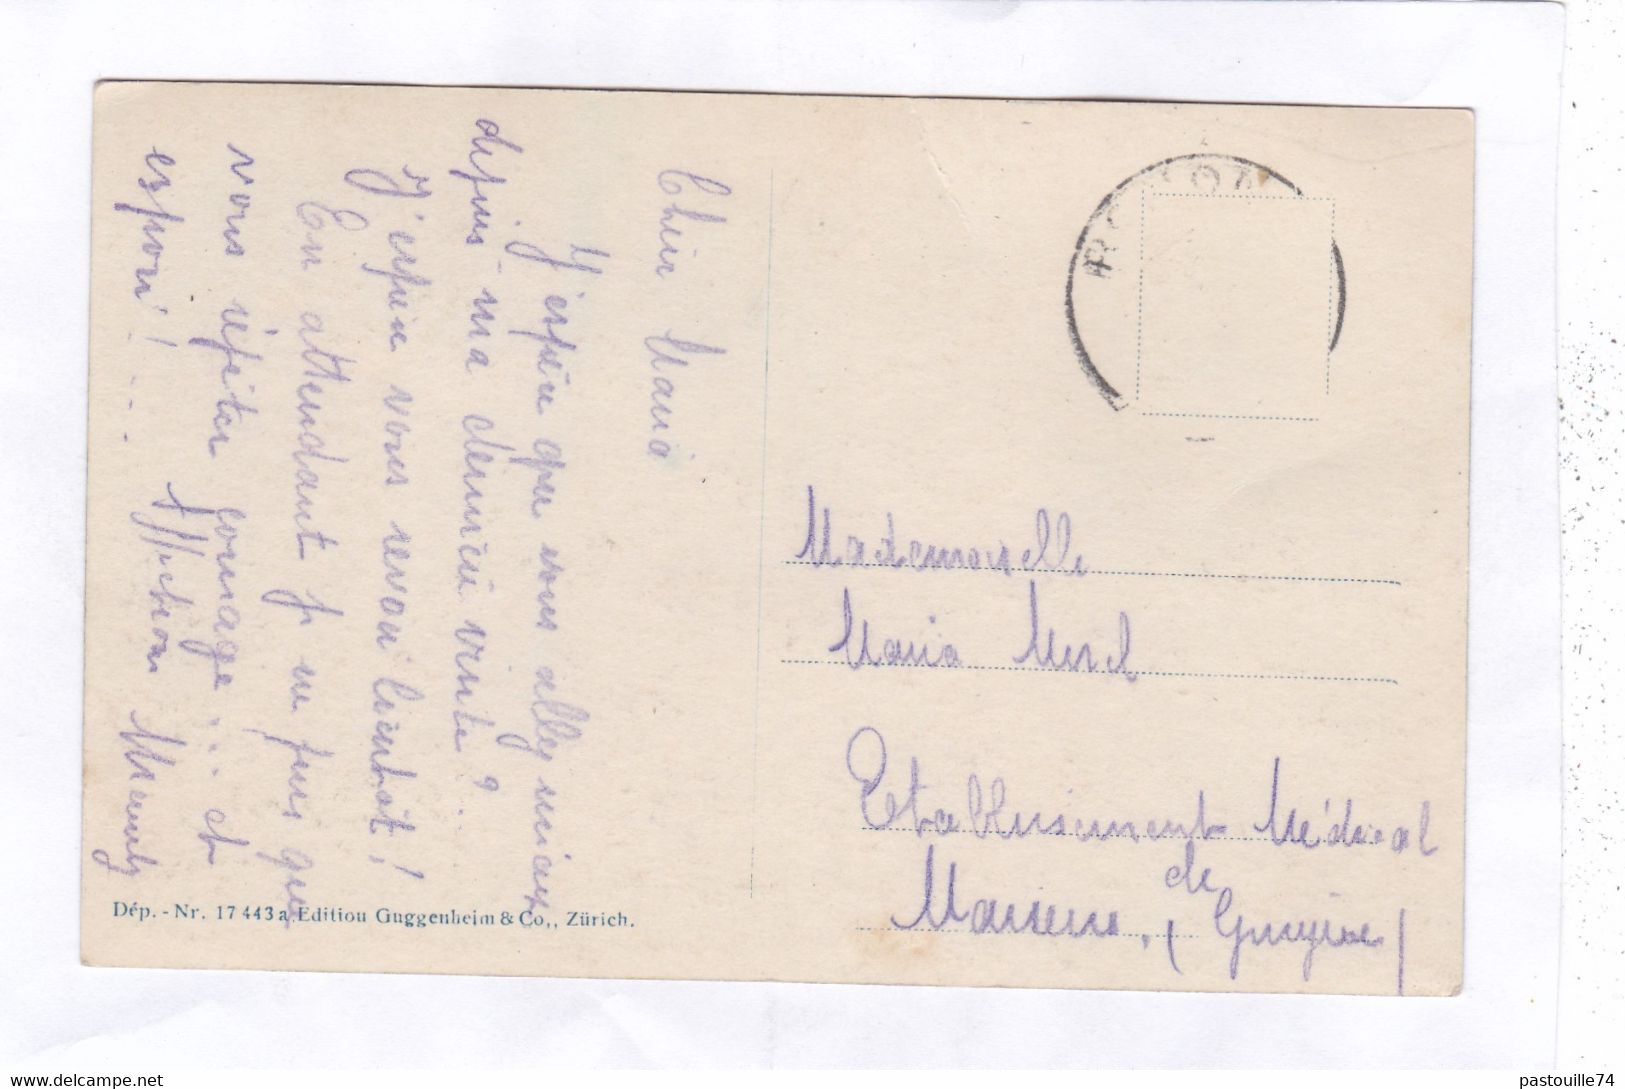 Chère Maria
J'espère que vous allez mieux
depuis ma dernière visite ? . .
J'espère vous revoir bientôt !
En attendant je ne puis que
vous répéter courage . . . et
espoir ! . . .
Affection Mamy
Mademoiselle
Maria
Etablissement Médical
de
( Gruyère )
Dép. - Nr. 17 443 a. Edition Guggenheim & Co., Zürich.
pastouille74